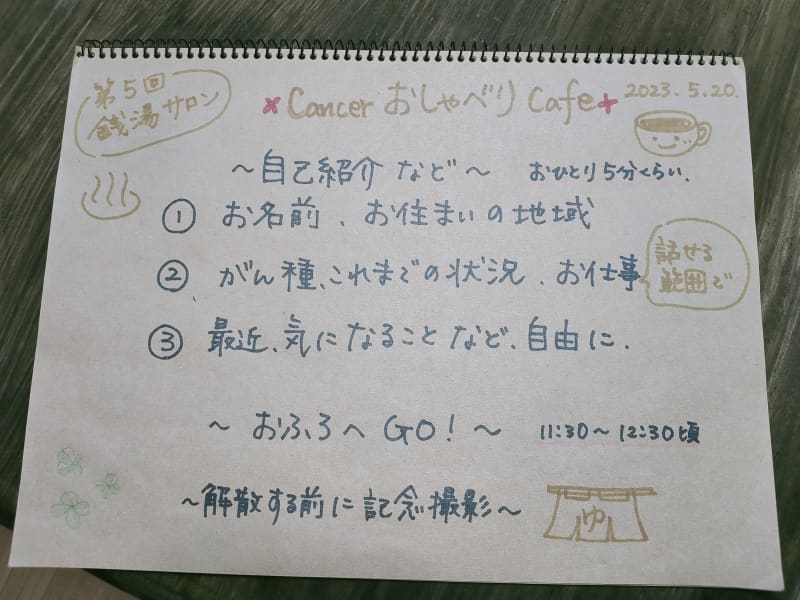 第5回
銭湯サロン
Cancer おしゃべり Cafe
2023.5.20.
～自己紹介 など～ おひとり5分くらい.
① お名前、お住まいの地域
② がん種、これまでの状況、お仕事
話せる
範囲で
③ 最近、気になること など、自由に.
～ おふろへ GO! ～ 11:30～12:30頃
～解散する前に記念撮影～
ゆ